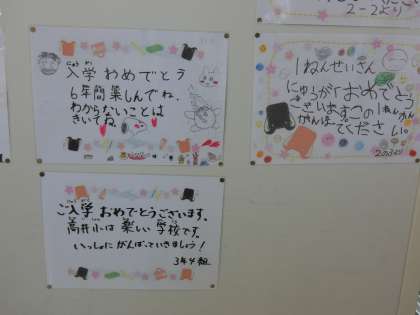 2-2より
入学 おめでとう
にゅうがく
6年間楽しんでね、
わからないことは
きいてね
1ねんせいさん
にゅうがくおめでとう
ございます
がんばって
ください
ご入学 おめでとうございます。
にゅうがく
高井小は 楽しい 学校です。
いっしょに がんばっていきましょう!
3年4組